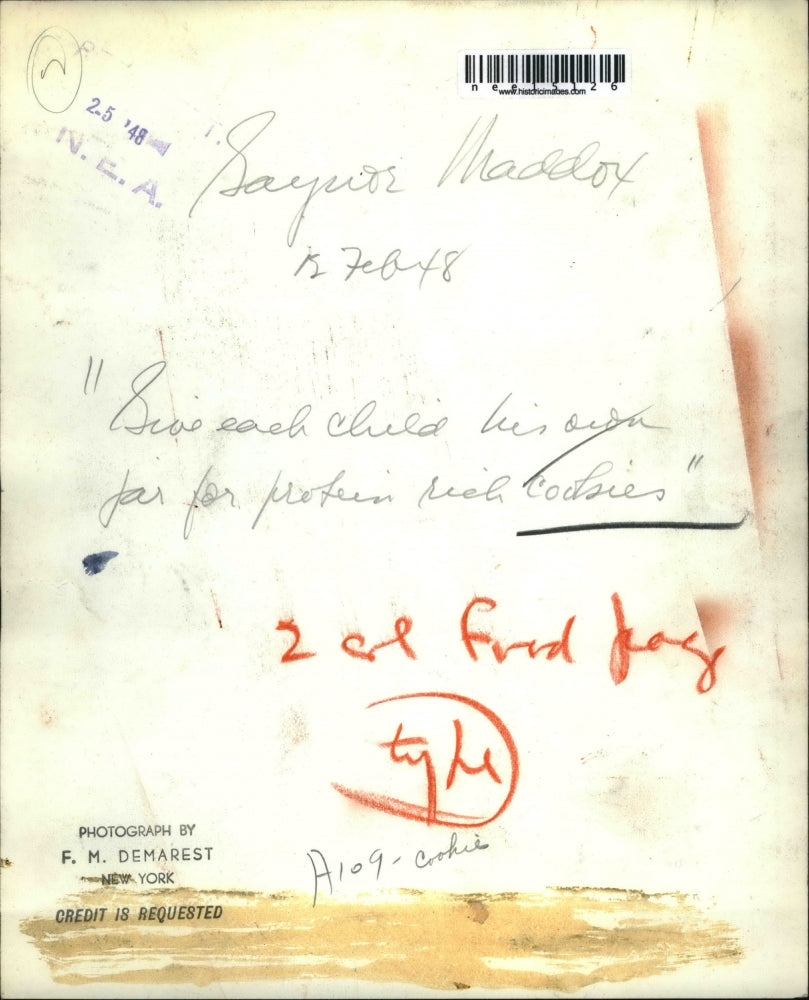 2-5 '48
N. E. A.
nee15126
www.historicimages.com
Gaynor Maddox
12 Feb 48
"Give each child his own
jar for protein rich cookies"
2 col Food page
style
A109 - cookie
PHOTOGRAPH BY
F. M. DEMAREST
NEW YORK
CREDIT IS REQUESTED